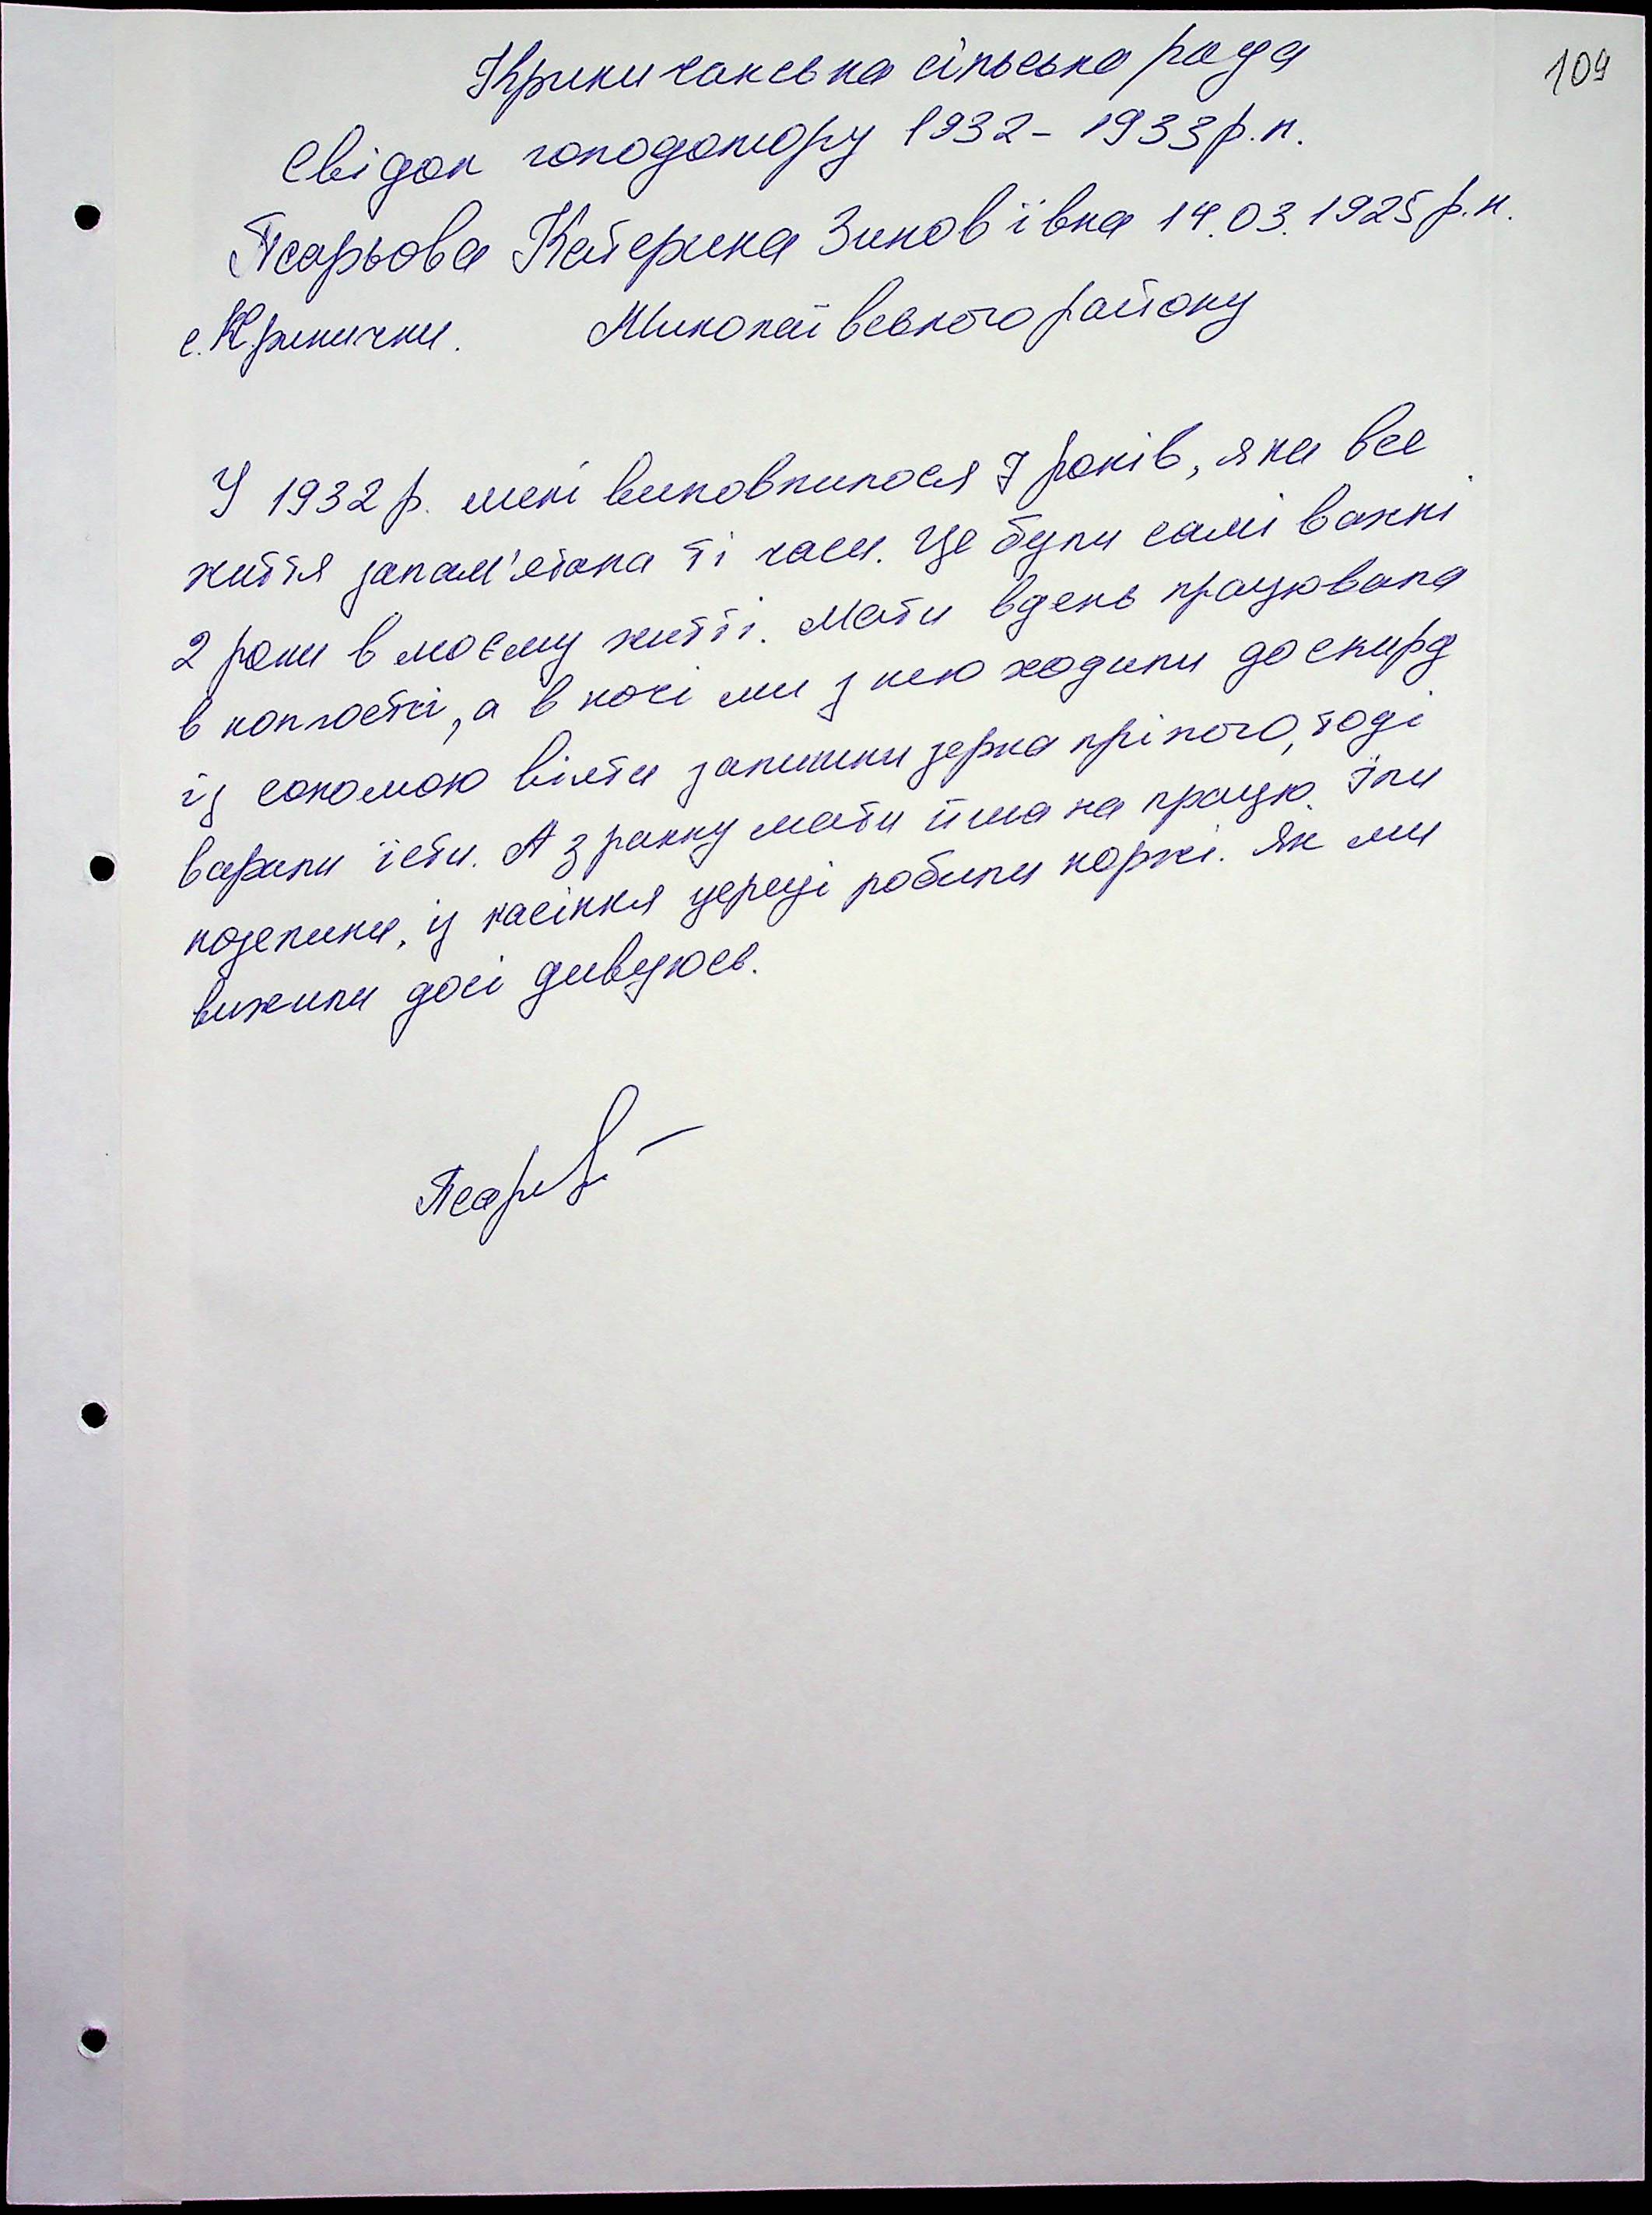 109
Криничанська сільська рада
Свідок голодомору 1932-1933 р.п.
Псарьова Катерина Зинов'ївна 14.03.1925 р.н.
с. Кринички. Миколаївського району
У 1932 р. мені виповнилося 7 років, яка все
життя запам'ятала ті часи. Це були самі важкі
2 роки в моєму житті. Мати вдень працювала
в колгоспі, а в ночі ми з нею ходили до скирд
із соломою віяти залишки зерна прілого, тоді
варили їсти. А зранку мати йшла на працю. Їли
козелики, із насіння щериці робили коржі. Як ми
вижили досі дивуюсь.